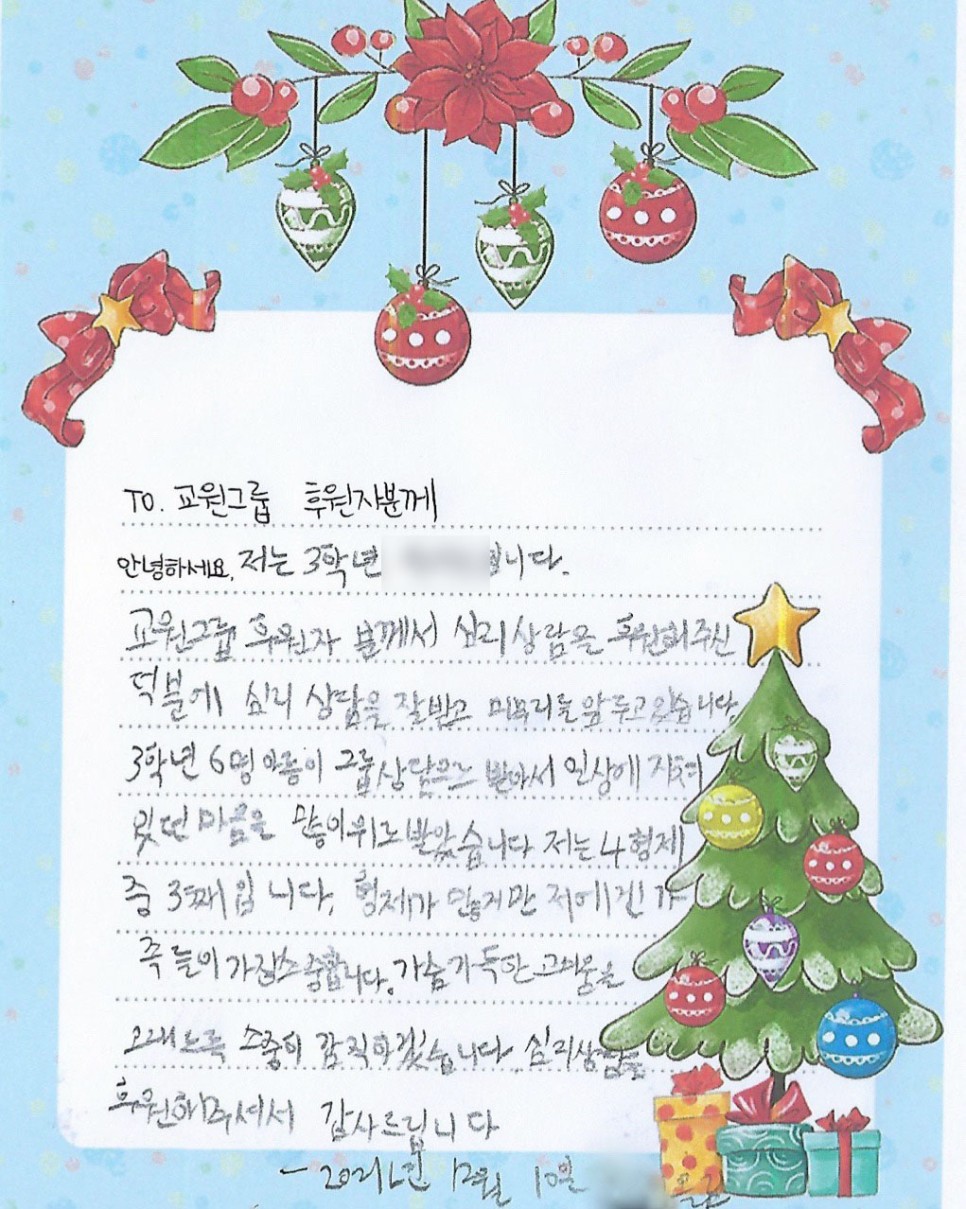 TO. 교원그룹 후원자분께
안녕하세요. 저는 3학년 니다.
교원그룹 후원자 분께서 심리상담을 후원해주신
덕분에 심리 상담을 잘받고 마무리를 앞두고있습니다
3학년 6명 아동이 그룹상담으로 받아서 일상에 지쳐
있던 마음을 많이위로받았습니다 저는 4형제
중 3째입니다. 형제가 많지만 저에겐 가
족들이 가장소중합니다. 가슴가득한 고마움을
오래도록 소중히 간직하겠습니다 심리상담을
후원해주셔서 감사드립니다
-2021년 12월 10일